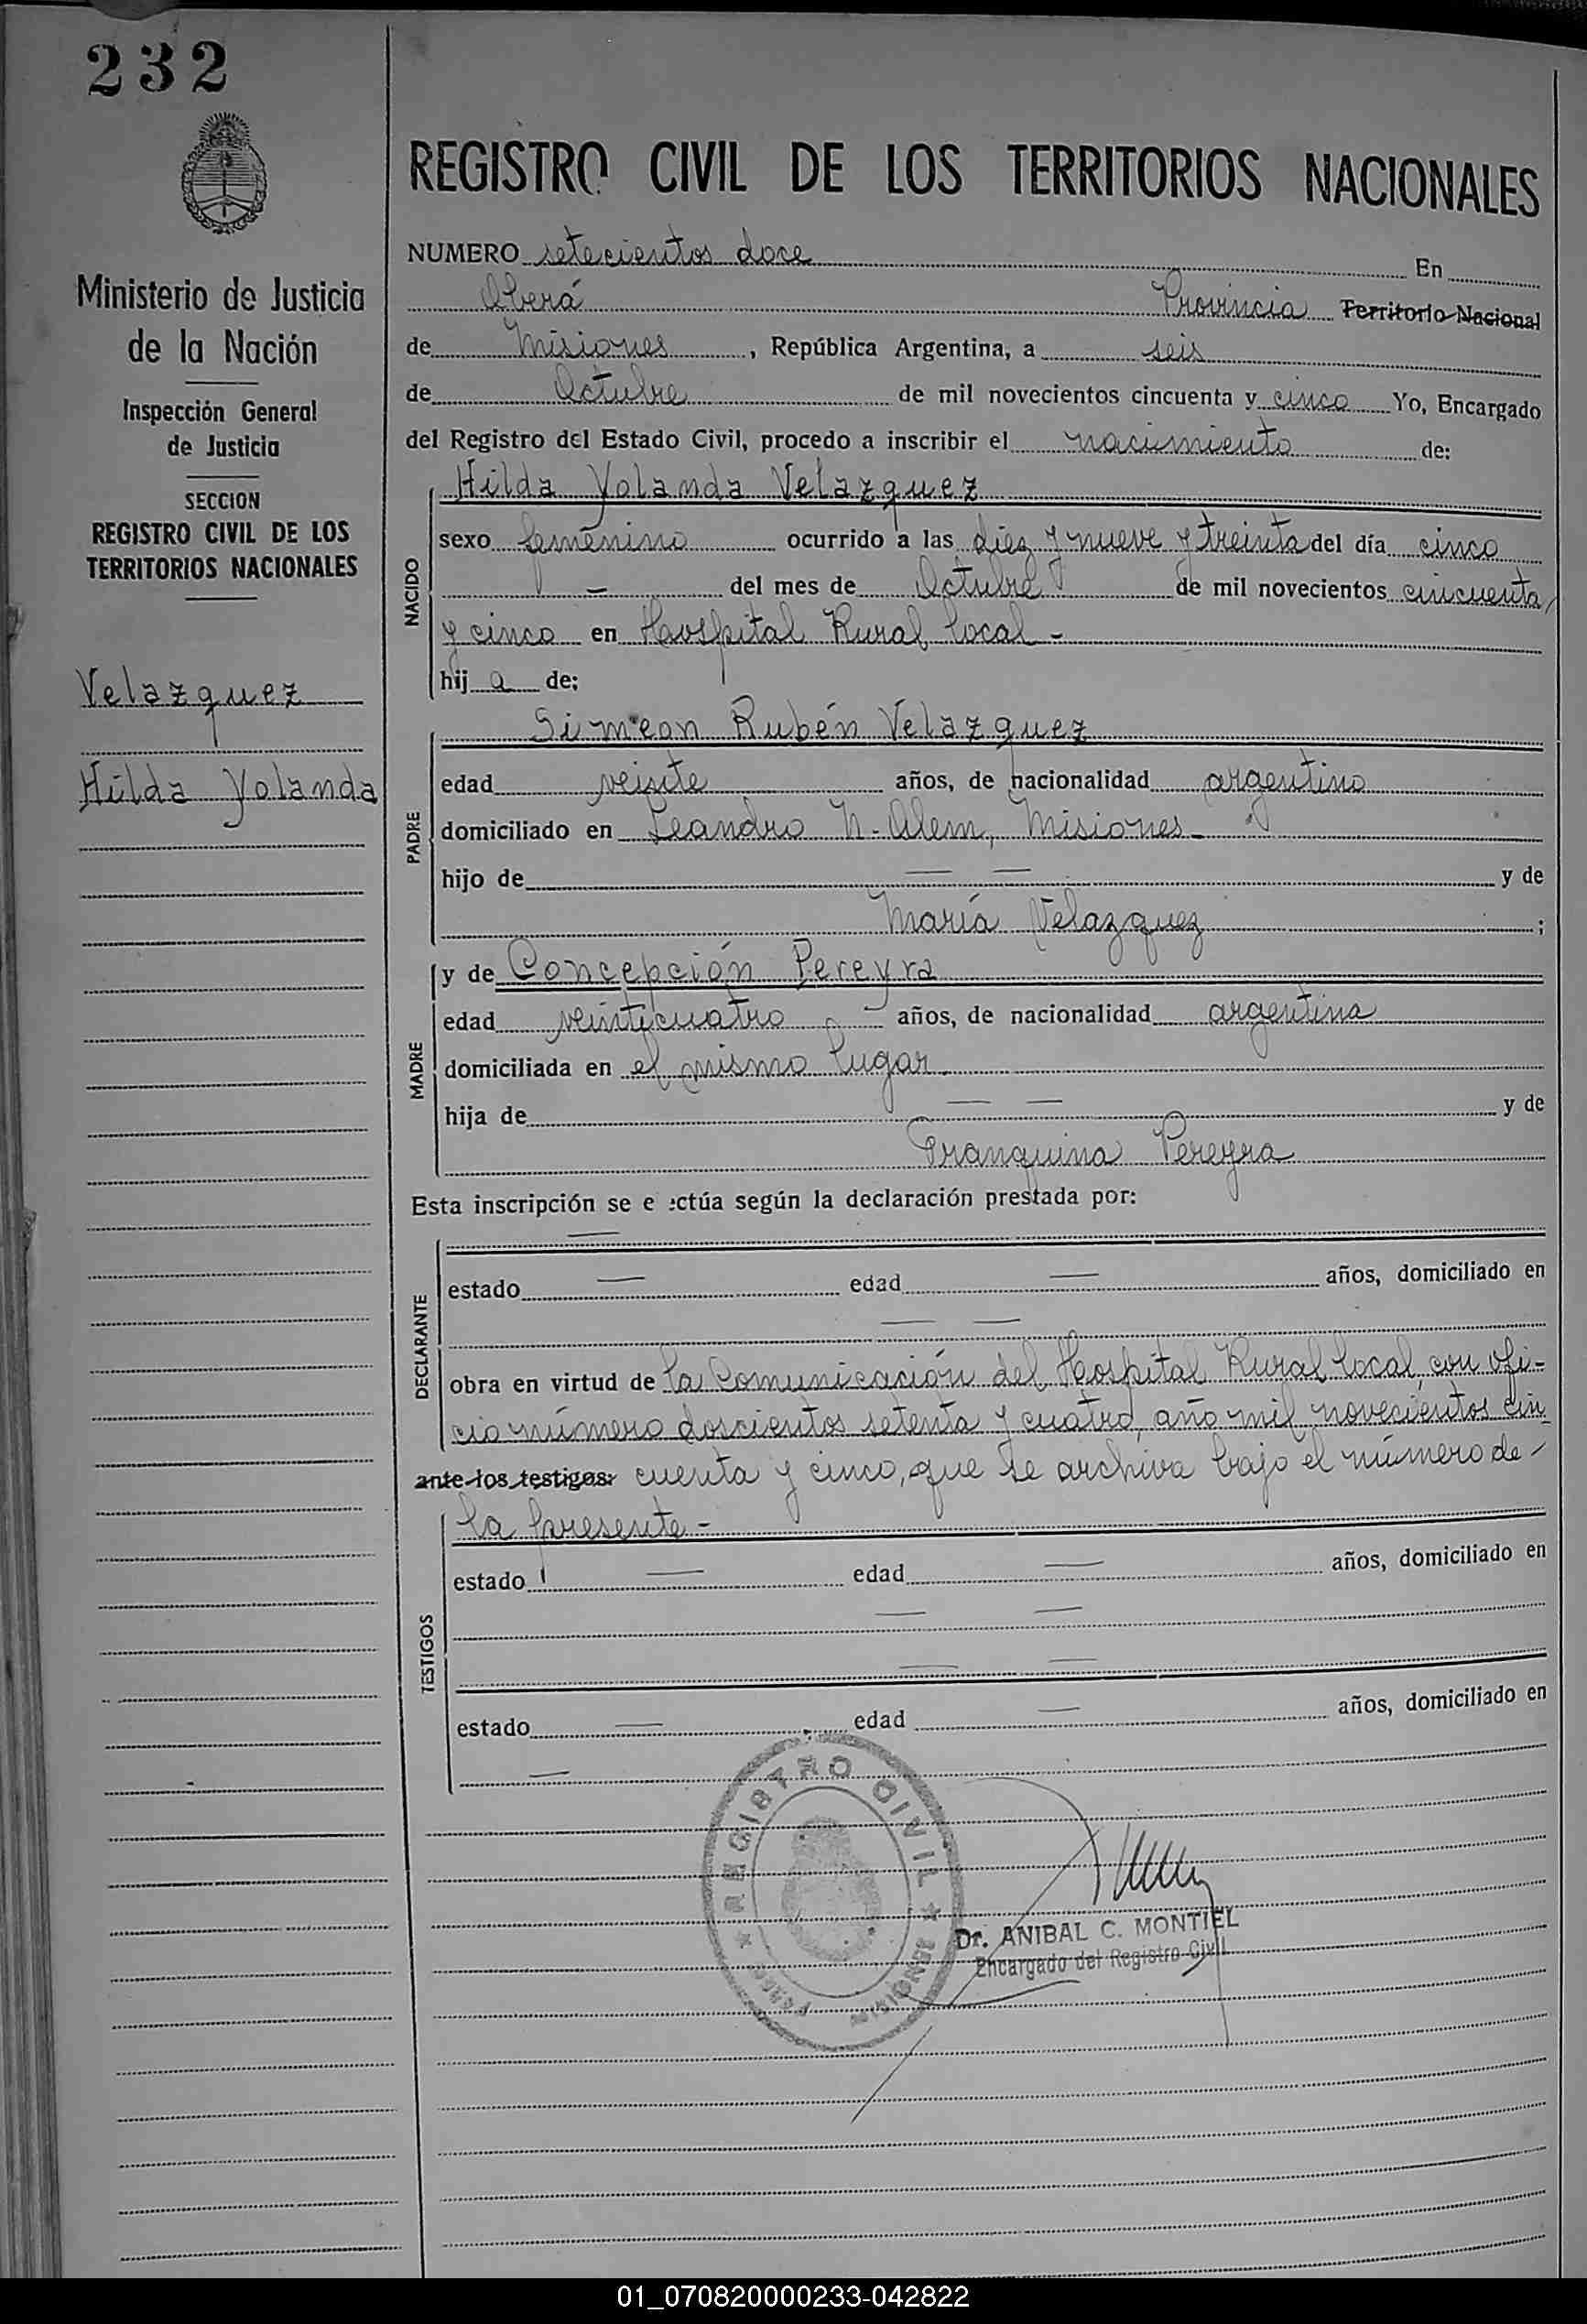 232
Ministerio de Justicia
de la Nación
Inspección General
de Justicia
SECCION
REGISTRO CIVIL DE LOS
TERRITORIOS NACIONALES
Velazquez
Hilda Yolanda
REGISTRO CIVIL DE LOS TERRITORIOS NACIONALES
NUMERO setecientos doce En
Oberá Provincia Territorio Nacional
de Misiones, República Argentina, a seis
de Octubre de mil novecientos cincuenta y cinco Yo, Encargado
del Registro del Estado Civil, procedo a inscribir el nacimiento de:
NACIDO
Hilda Yolanda Velazquez
sexo femenino ocurrido a las diez y nueve y treinta del día cinco
— del mes de Octubre de mil novecientos cincuenta
y cinco en Hospital Rural local -
hij a de:
PADRE
Simeon Rubén Velazquez
edad veinte años, de nacionalidad argentino
domiciliado en Leandro N. Alem, Misiones -
hijo de — — y de
María Velazquez ;
MADRE
y de Concepción Pereyra
edad veinticuatro — años, de nacionalidad argentina
domiciliada en el mismo lugar.
hija de — — y de
Franquina Pereyra
Esta inscripción se e ectúa según la declaración prestada por:
DECLARANTE
—
estado — edad — años, domiciliado en
— —
obra en virtud de la Comunicación del Hospital Rural local, con ofi-
cio número doscientos setenta y cuatro, año mil novecientos cin
ante los testigos: cuenta y cinco, que se archiva bajo el número de
la presente -
TESTIGOS
estado — edad — años, domiciliado en
— —
— —
estado — edad — años, domiciliado en
—
REGISTRO CIVIL
MISIONES
Dr. ANIBAL C. MONTIEL
Encargado del Registro Civil
01_070820000233-042822